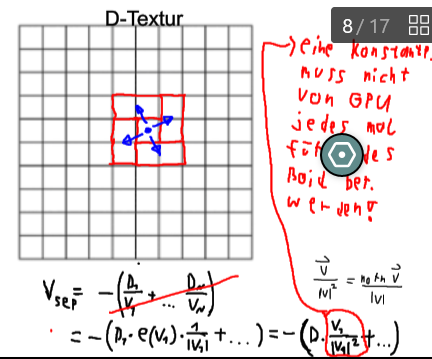 D-Textur
8 / 17
→ eine Konstante,
muss nicht
von GPU
jedes mal
für des
Boid ber.
werden!
V_sep = -(D₁/V₁ + ... D_N/V_N)
= -(D₁ · e(V₁) · 1/|V₁| + ...) = -(D · V₁/|V₁|² + ...)
V⃗/|V|² = norm V⃗/|V|